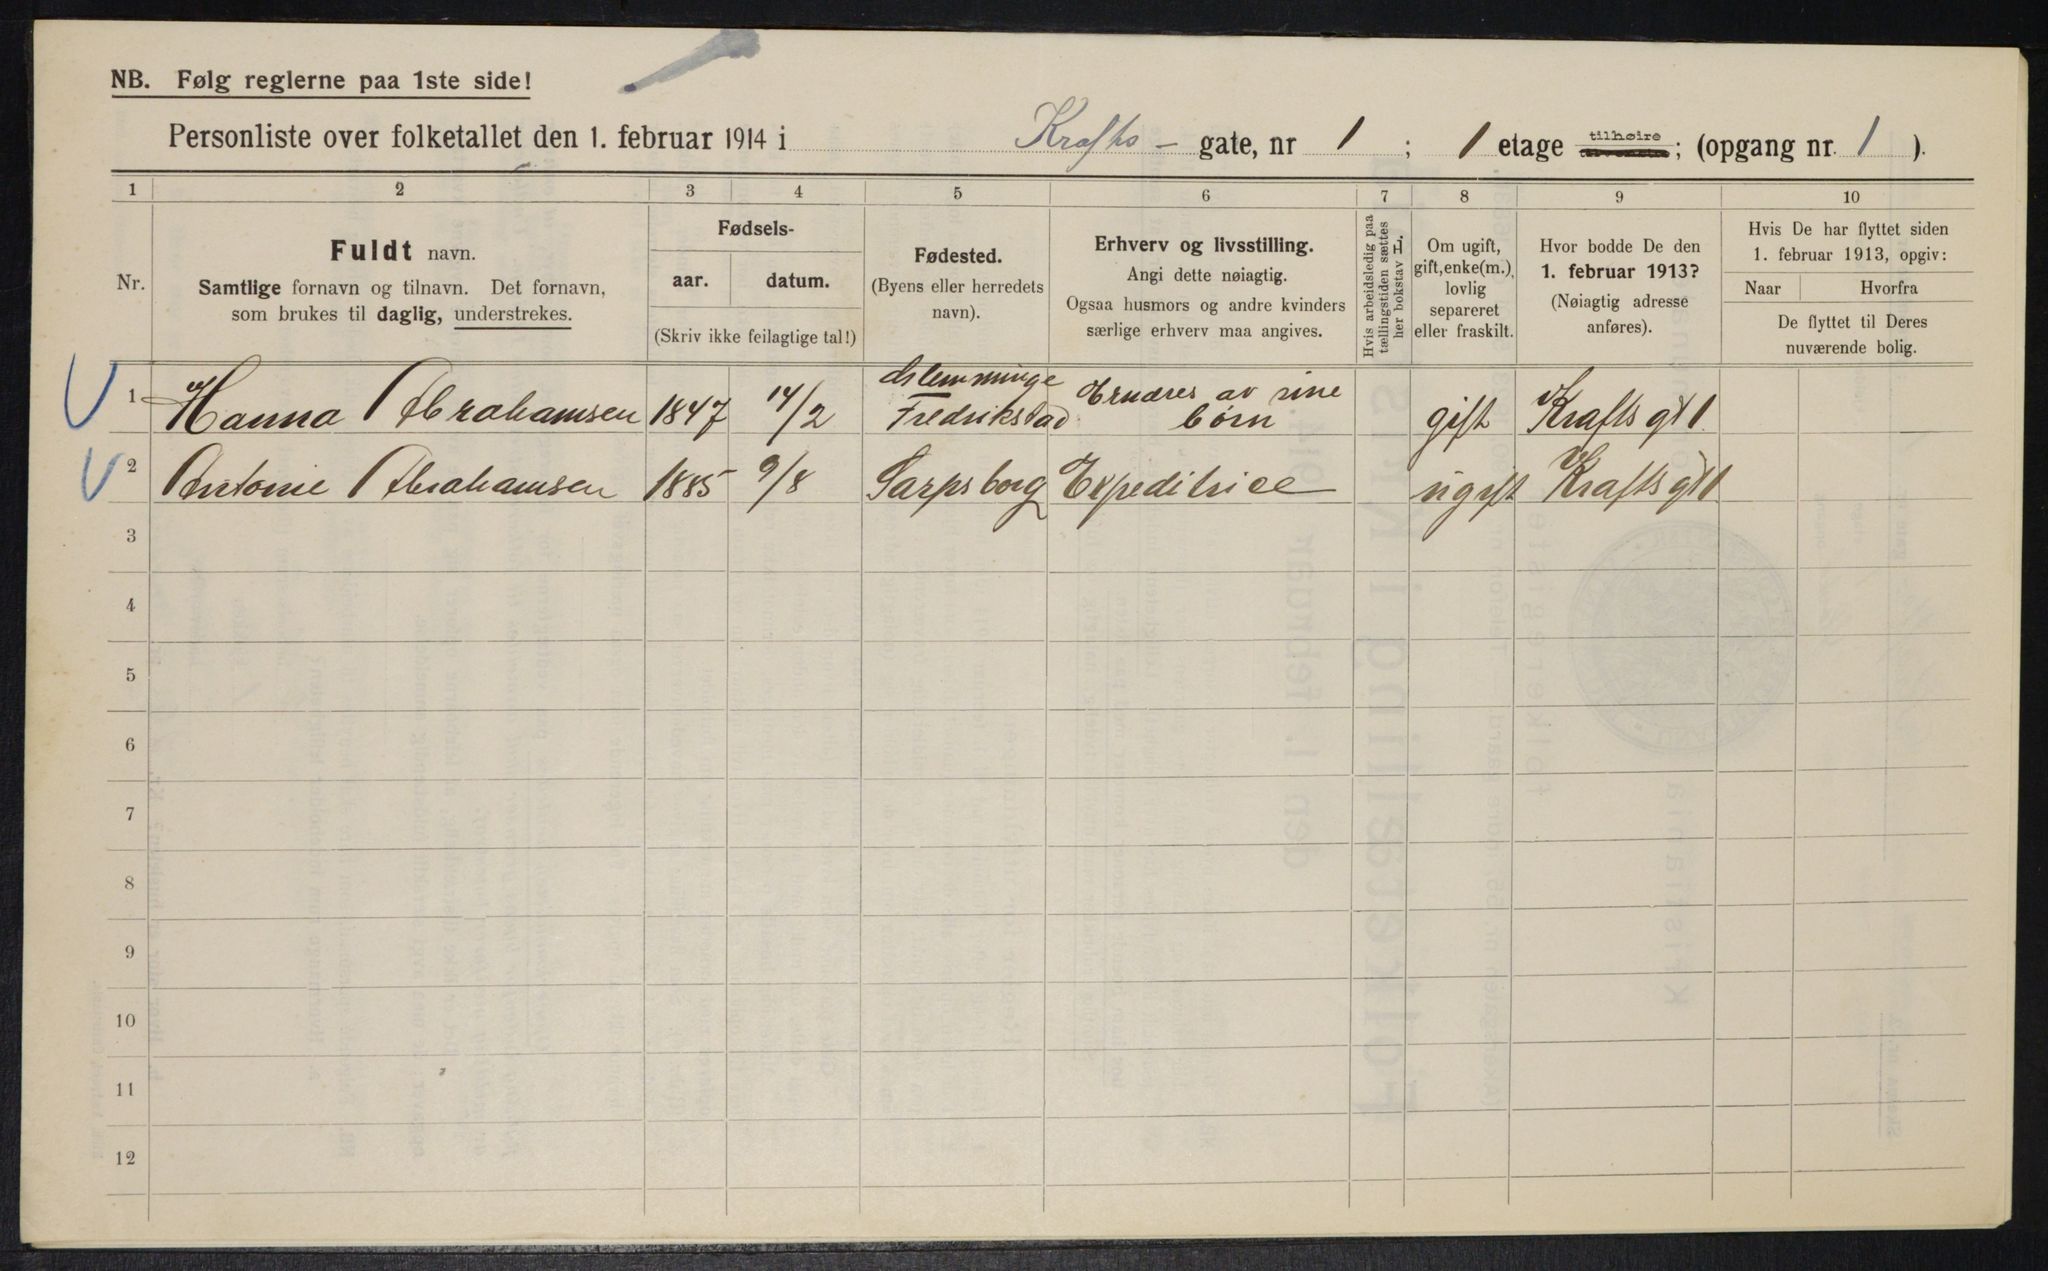 NB. Følg reglerne paa 1ste side!
Personliste over folketallet den 1. februar 1914 i Krafts - gate, nr 1 ; 1 etage tilhøire; (opgang nr. 1 ).
1 2 3 4 5 6 7 8 9 10
Nr.
Fuldt navn.
Samtlige fornavn og tilnavn. Det fornavn,
som brukes til daglig, understrekes.
Fødsels-
aar. datum.
(Skriv ikke feilagtige tal!)
Fødested.
(Byens eller herredets
navn).
Erhverv og livsstilling.
Angi dette nøiagtig.
Ogsaa husmors og andre kvinders
særlige erhverv maa angives.
Hvis arbeidsledig paa
tællingstiden sættes
her bokstav L.
Om ugift,
gift, enke(m.),
lovlig
separeret
eller fraskilt.
Hvor bodde De den
1. februar 1913?
(Nøiagtig adresse
anføres).
Hvis De har flyttet siden
1. februar 1913, opgiv:
Naar Hvorfra
De flyttet til Deres
nuværende bolig.
1 Hanna Abrahamsen 1847 14/2 Glemminge Fredrikstad Ernæres av sine børn gift Krafts gt 1
2 Antonie Abrahamsen 1885 9/8 Sarpsborg Expeditrice ugift Krafts gt 1
3
4
5
6
7
8
9
10
11
12